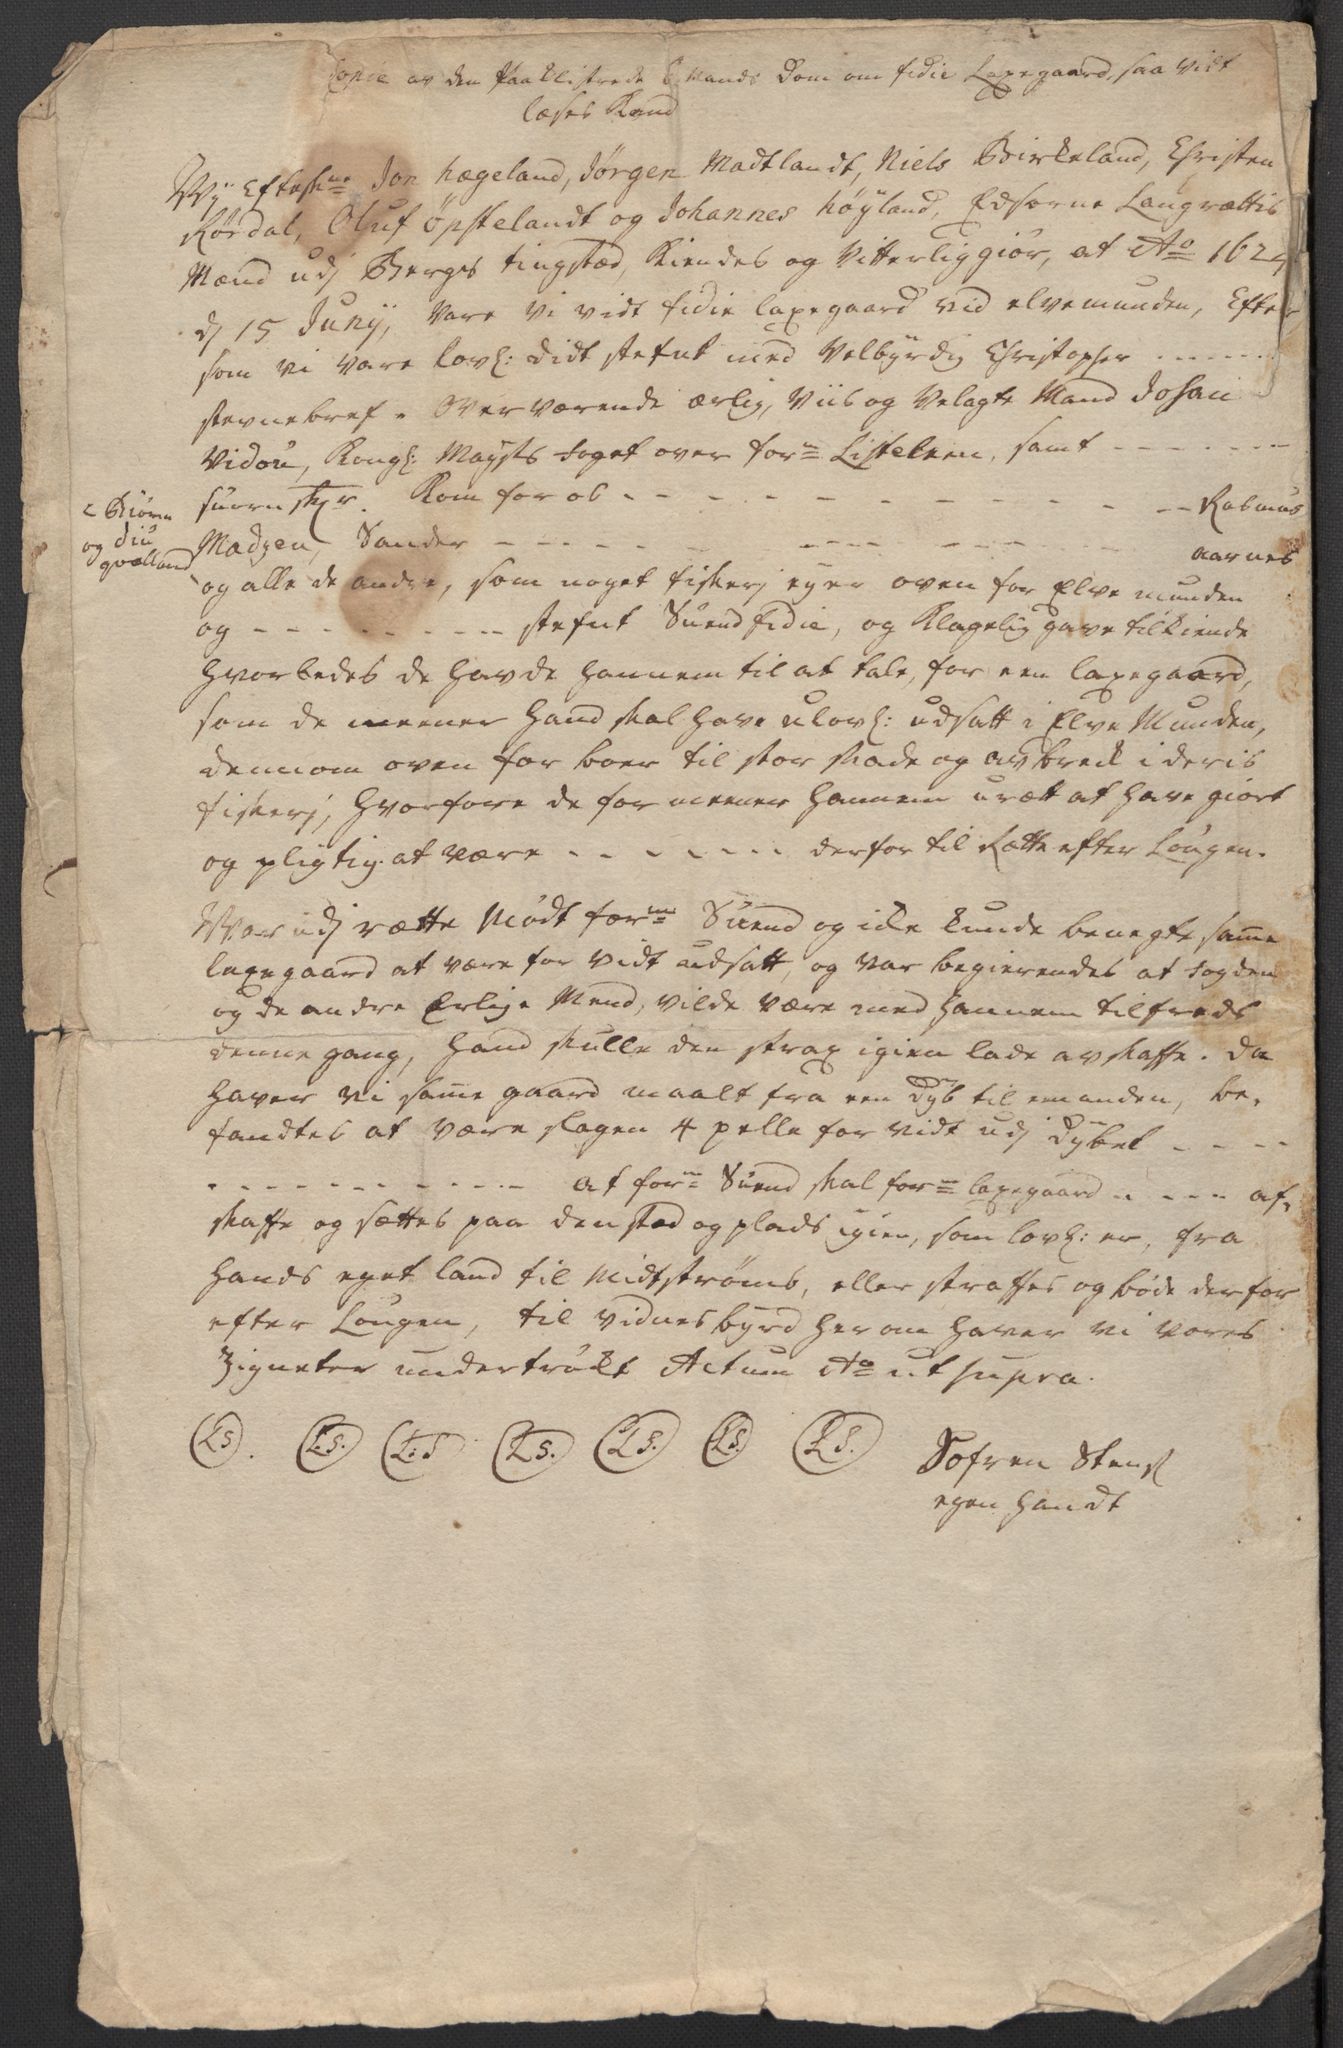 Copie av den paa Klistrede 6 Mands Dom om fidie Laxegaard, saa vidt
læses Kand
Wÿ Eftschne Jon hægeland, Jörgen Madtlandt, Niels Birkeland, Christen
Rördal, Oluf Öpstelandt og Johannes höÿland, Edsorne Laugrættis
Mænd udj Berges tingstæd, Kiendes og Vitterliggiör, at Ao 162
dj 15 Junÿ, Vare Vi vidt fidie laxegaard vid elvemunden, Efter
som vi vare lovl: didt stefnt med Velbÿrdig Christopher - - - - - -
stevnebref. Overværende ærlig, Viis og Velagte Mand Johan
Vidou, Kongl: Maÿsts foget over forne Listelen, samt - - - - - -
suorn skr. Kom for os - - - - - - - - - - Rasmus
Biörn
og Siu
qvælland
Madzen, Sander - - - - - - - - - - - - aarnes
og alle de andre, som noget fiskerj eÿer oven for Elve munden
og - - - - - - - - - stefnt Suend fidie, og Klagelig gave tilkiende
hvorledes de havde hannem til at tale, for een laxegaard,
som de meener hand skal have ulovl: udsatt i Elve Munden,
dennom oven for boer til stor skade og avbreck i deris
fiskerj, hvorfore de formeener hannem uræt at have giort
og pligtig at være - - - - - - - derfor til Rætte efter Lougen.
War udj rætte Mödt forne Suend og icke kunde benegte samme
laxegaard at være for vidt udsatt, og var begierendes at fogden
og de andre Erlige Mend, vilde være med hannem tilfreds
denne gang, hand skulle den strax igien lade avskaffe. Da
haver vi same gaard maalt fra een Dÿb til een anden, be-
fandtes at være slagen 4 pelle for vidt udj Dÿbet - - - -
- - - - - - - - - - - at forne Suend skal forne laxegaard - - - - af-
skaffe og sættes paa den stæd og plads igien, som lovl: er, fra
hands eget land til Midtströms, eller straffes og böde derfor
efter Lougen, til vidnesbÿrd herom haver vi vores
Zigneter undertrÿkt Actum Ao ut supra.
LS. L:S. L:S LS. LS. LS. LS.
Sofren Stens
egen handt